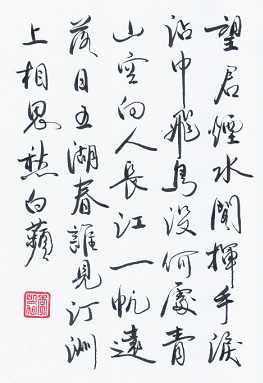 望君煙水闊揮手淚
沾巾飛鳥沒何處青
山空向人長江一帆遠
落日五湖春誰見汀洲
上相思愁白蘋